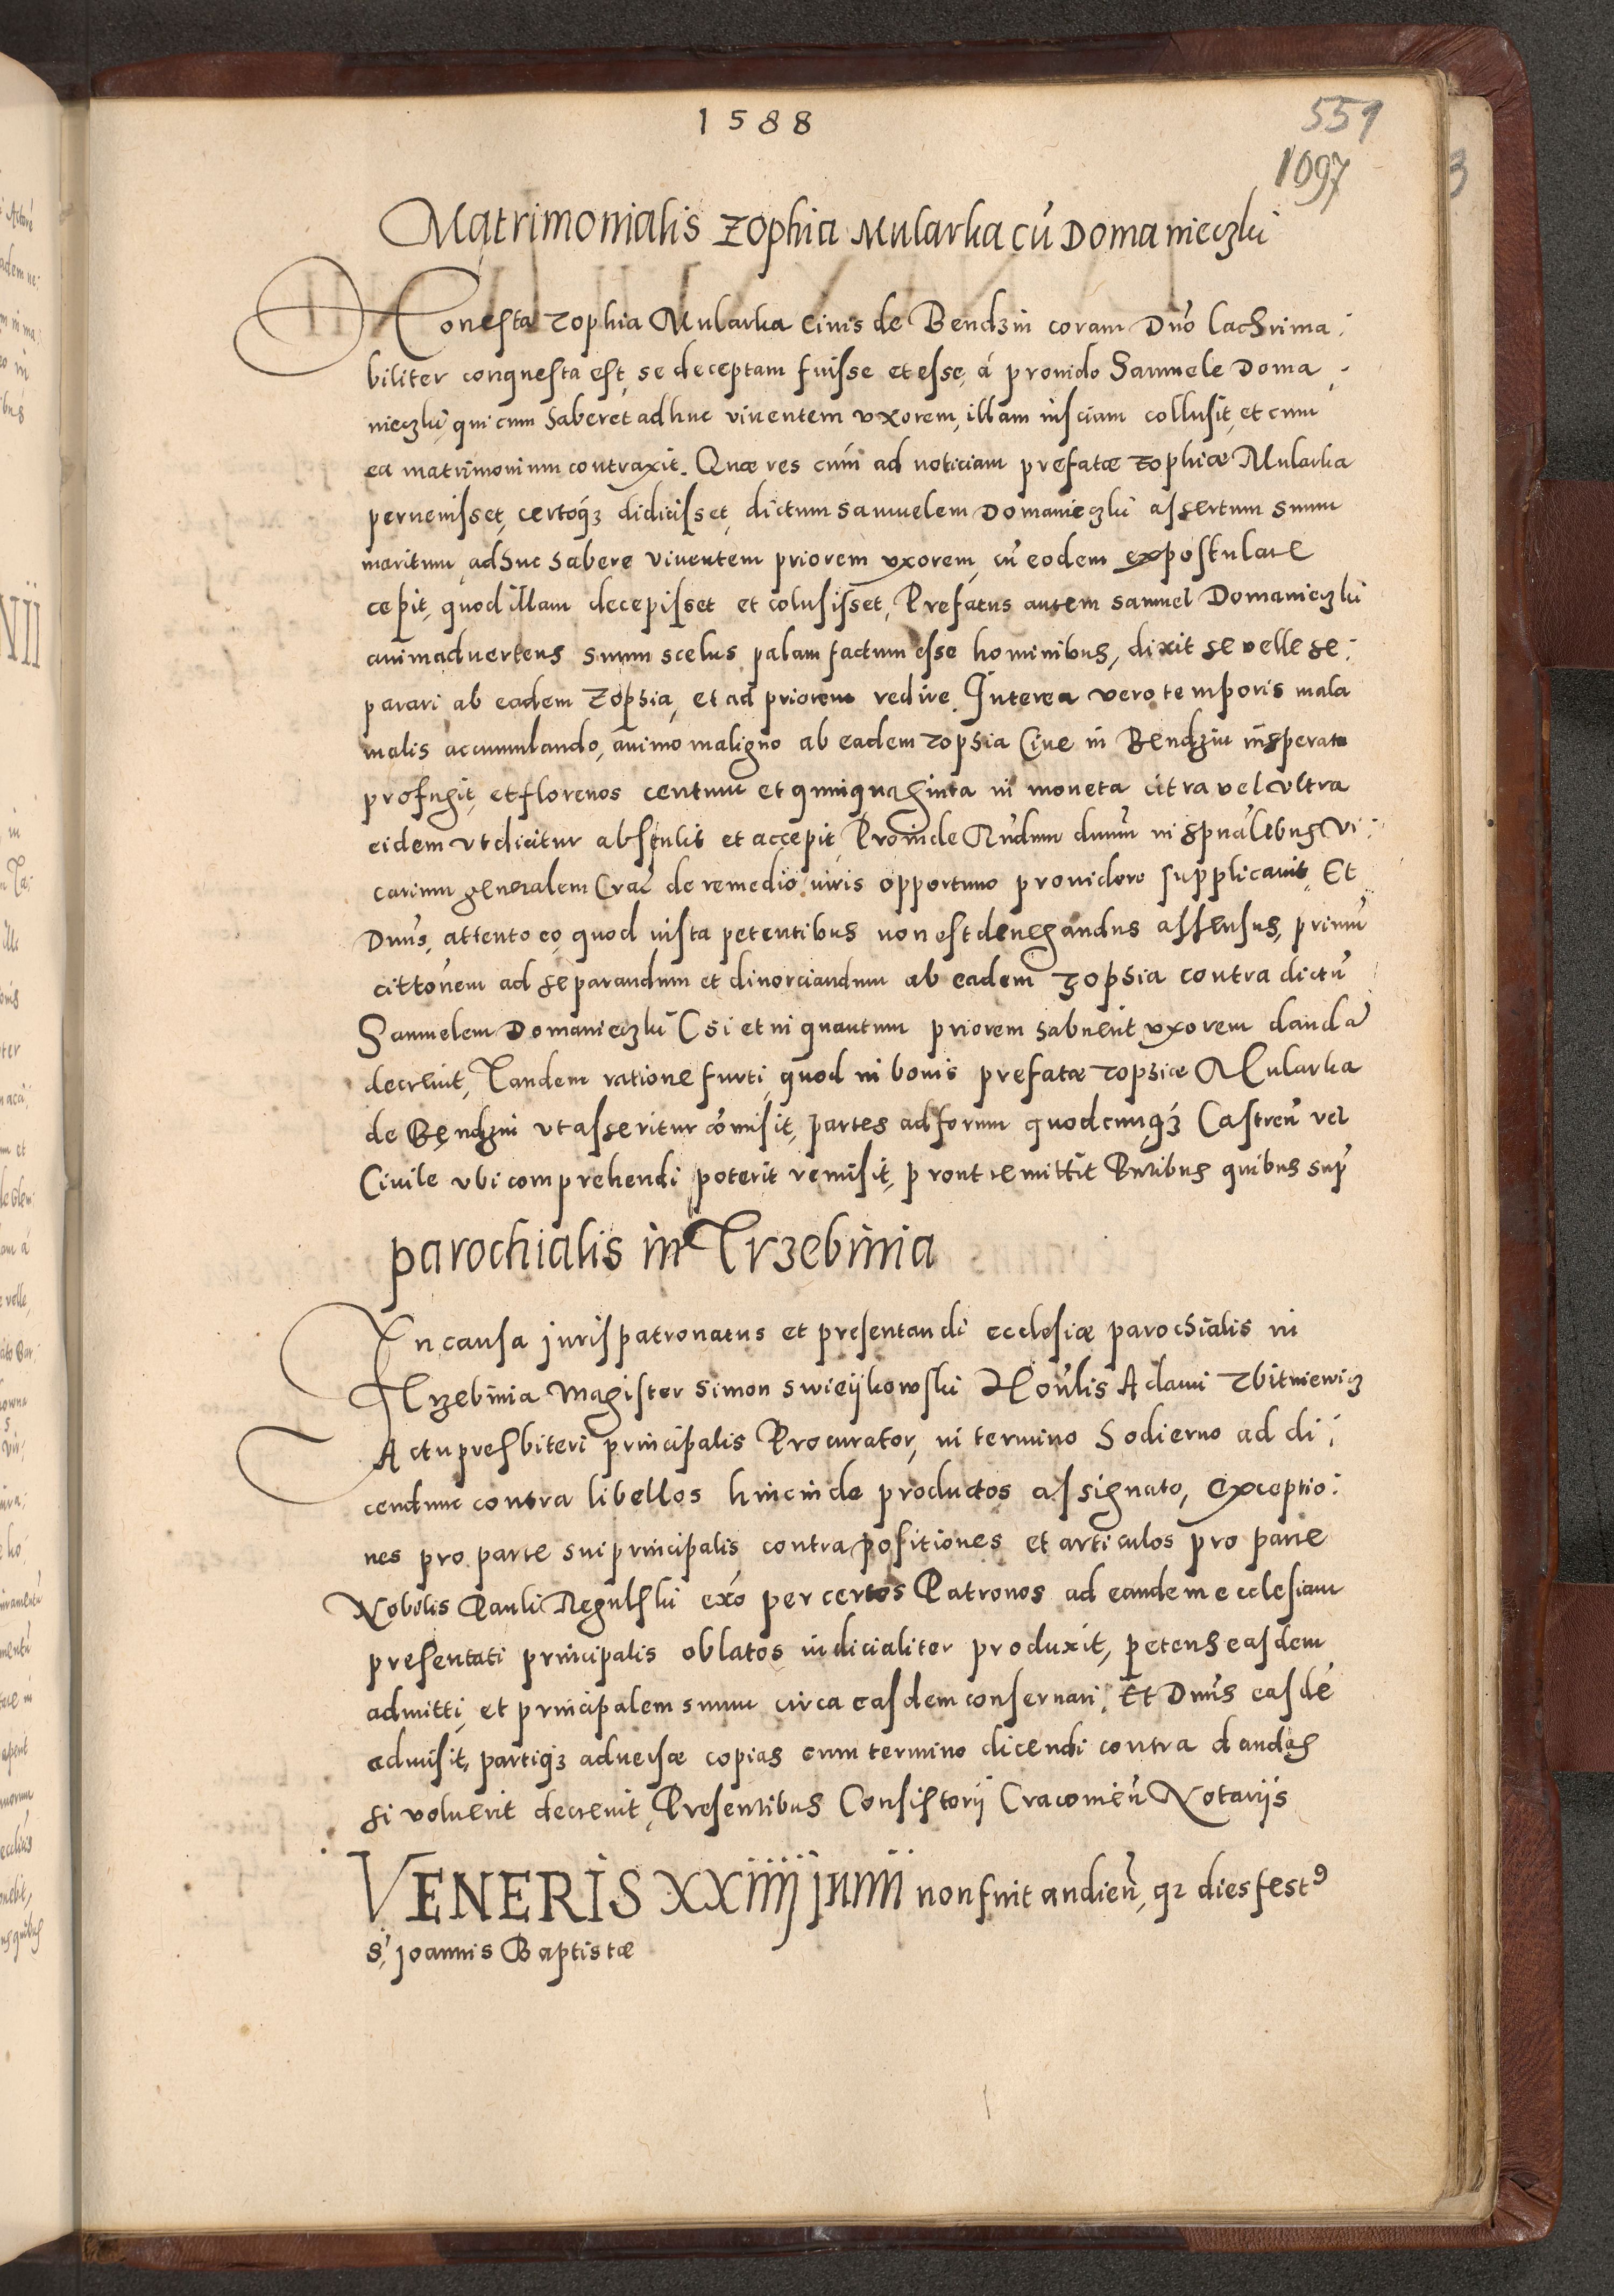 1588
559
1097
Matrimonialis Zophia Mularka cu̇ Domanieczki
Honesta Zophia Mularka Civis de Bendzin coram Dn̄o lachrima:
biliter conquesta est, se deceptam fuisse et esse, á provido Samuele Doma:
nieczki, qui cum haberet adhuc viventem vxorem, illam insciam collusit, et cum
ea matrimonium contraxit. Quæ res cum ad noticiam prefatæ Zophiæ Mularka
pervenisset, certoq₃ didicisset, dictum Samuelem Domanieczki assertum suum
maritum, adhuc habere viventem priorem vxorem, cū eodem expostulare
cepit, quod illam decepisset et colusisset, Prefatus autem Samuel Domanieczki
animadvertens suum scelus palam factum esse hominibus, dixit se velle se:
parari ab eadem Zophia, et ad priorem redire. Interea vero temporis mala
malis accumulando, animo maligno ab eadem Zophia Cive in Bendzin insperato
profugit, et florenos centum et quinquaginta in moneta citra vel vltra
eidem vt dicitur abstulit et accepit, Proinde Rn̄dum dnum in sp̄ualibus Vi:
carium generalem Crac̄ de remedio iuris opportuno providere supplicavit, Et
Dnus, attento eo, quod iusta petentibus non est denegandus assensus, primu̇
citt̄onem ad separandum et divorciandum ab eadem Zophia contra dictu̇
Samuelem Domanieczki (si et in quantum priorem habuerit vxorem dandā
decrevit, Tandem ratione furti, quod in bonis prefatæ Zophiæ Mularka
de Bendzin vt asseritur co̅misit, partes ad forum quodcunq₃ Castren̄ vel
Civile vbi comprehendi poterit remisit, prout remittit Pn̄tibus quibus sup̄
parochialis in Trzebinia
In causa jurispatronatus et presentandi ecclesiæ parochialis in
Trzebinia Magister Simon Swieijkowski Hon̄lis Adami Zbitniewicz
Actupresbiteri principalis Procurator, in termino hodierno ad di:
cendum contra libellos hincinde productos assignato, exceptio:
nes pro parte sui principalis contra positiones et articulos pro parte
Nobilis Pauli Regulski ex̄o per certos Patronos ad eandem ecclesiam
presentati principalis oblatos iudicialiter produxit, petens easdem
admitti, et principalem suum circa easdem conservari, Et Dnūs easdē
admisit, partiq₃ adversæ copias cum termino dicendi contra dandas
si voluerit decrevit, Presentibus Consistorij Cracovien̄ Notarijs
VENERIS XXiiij junii non fuit andien̄, qꝛ dies festꝰ
S. joannis Baptistæ